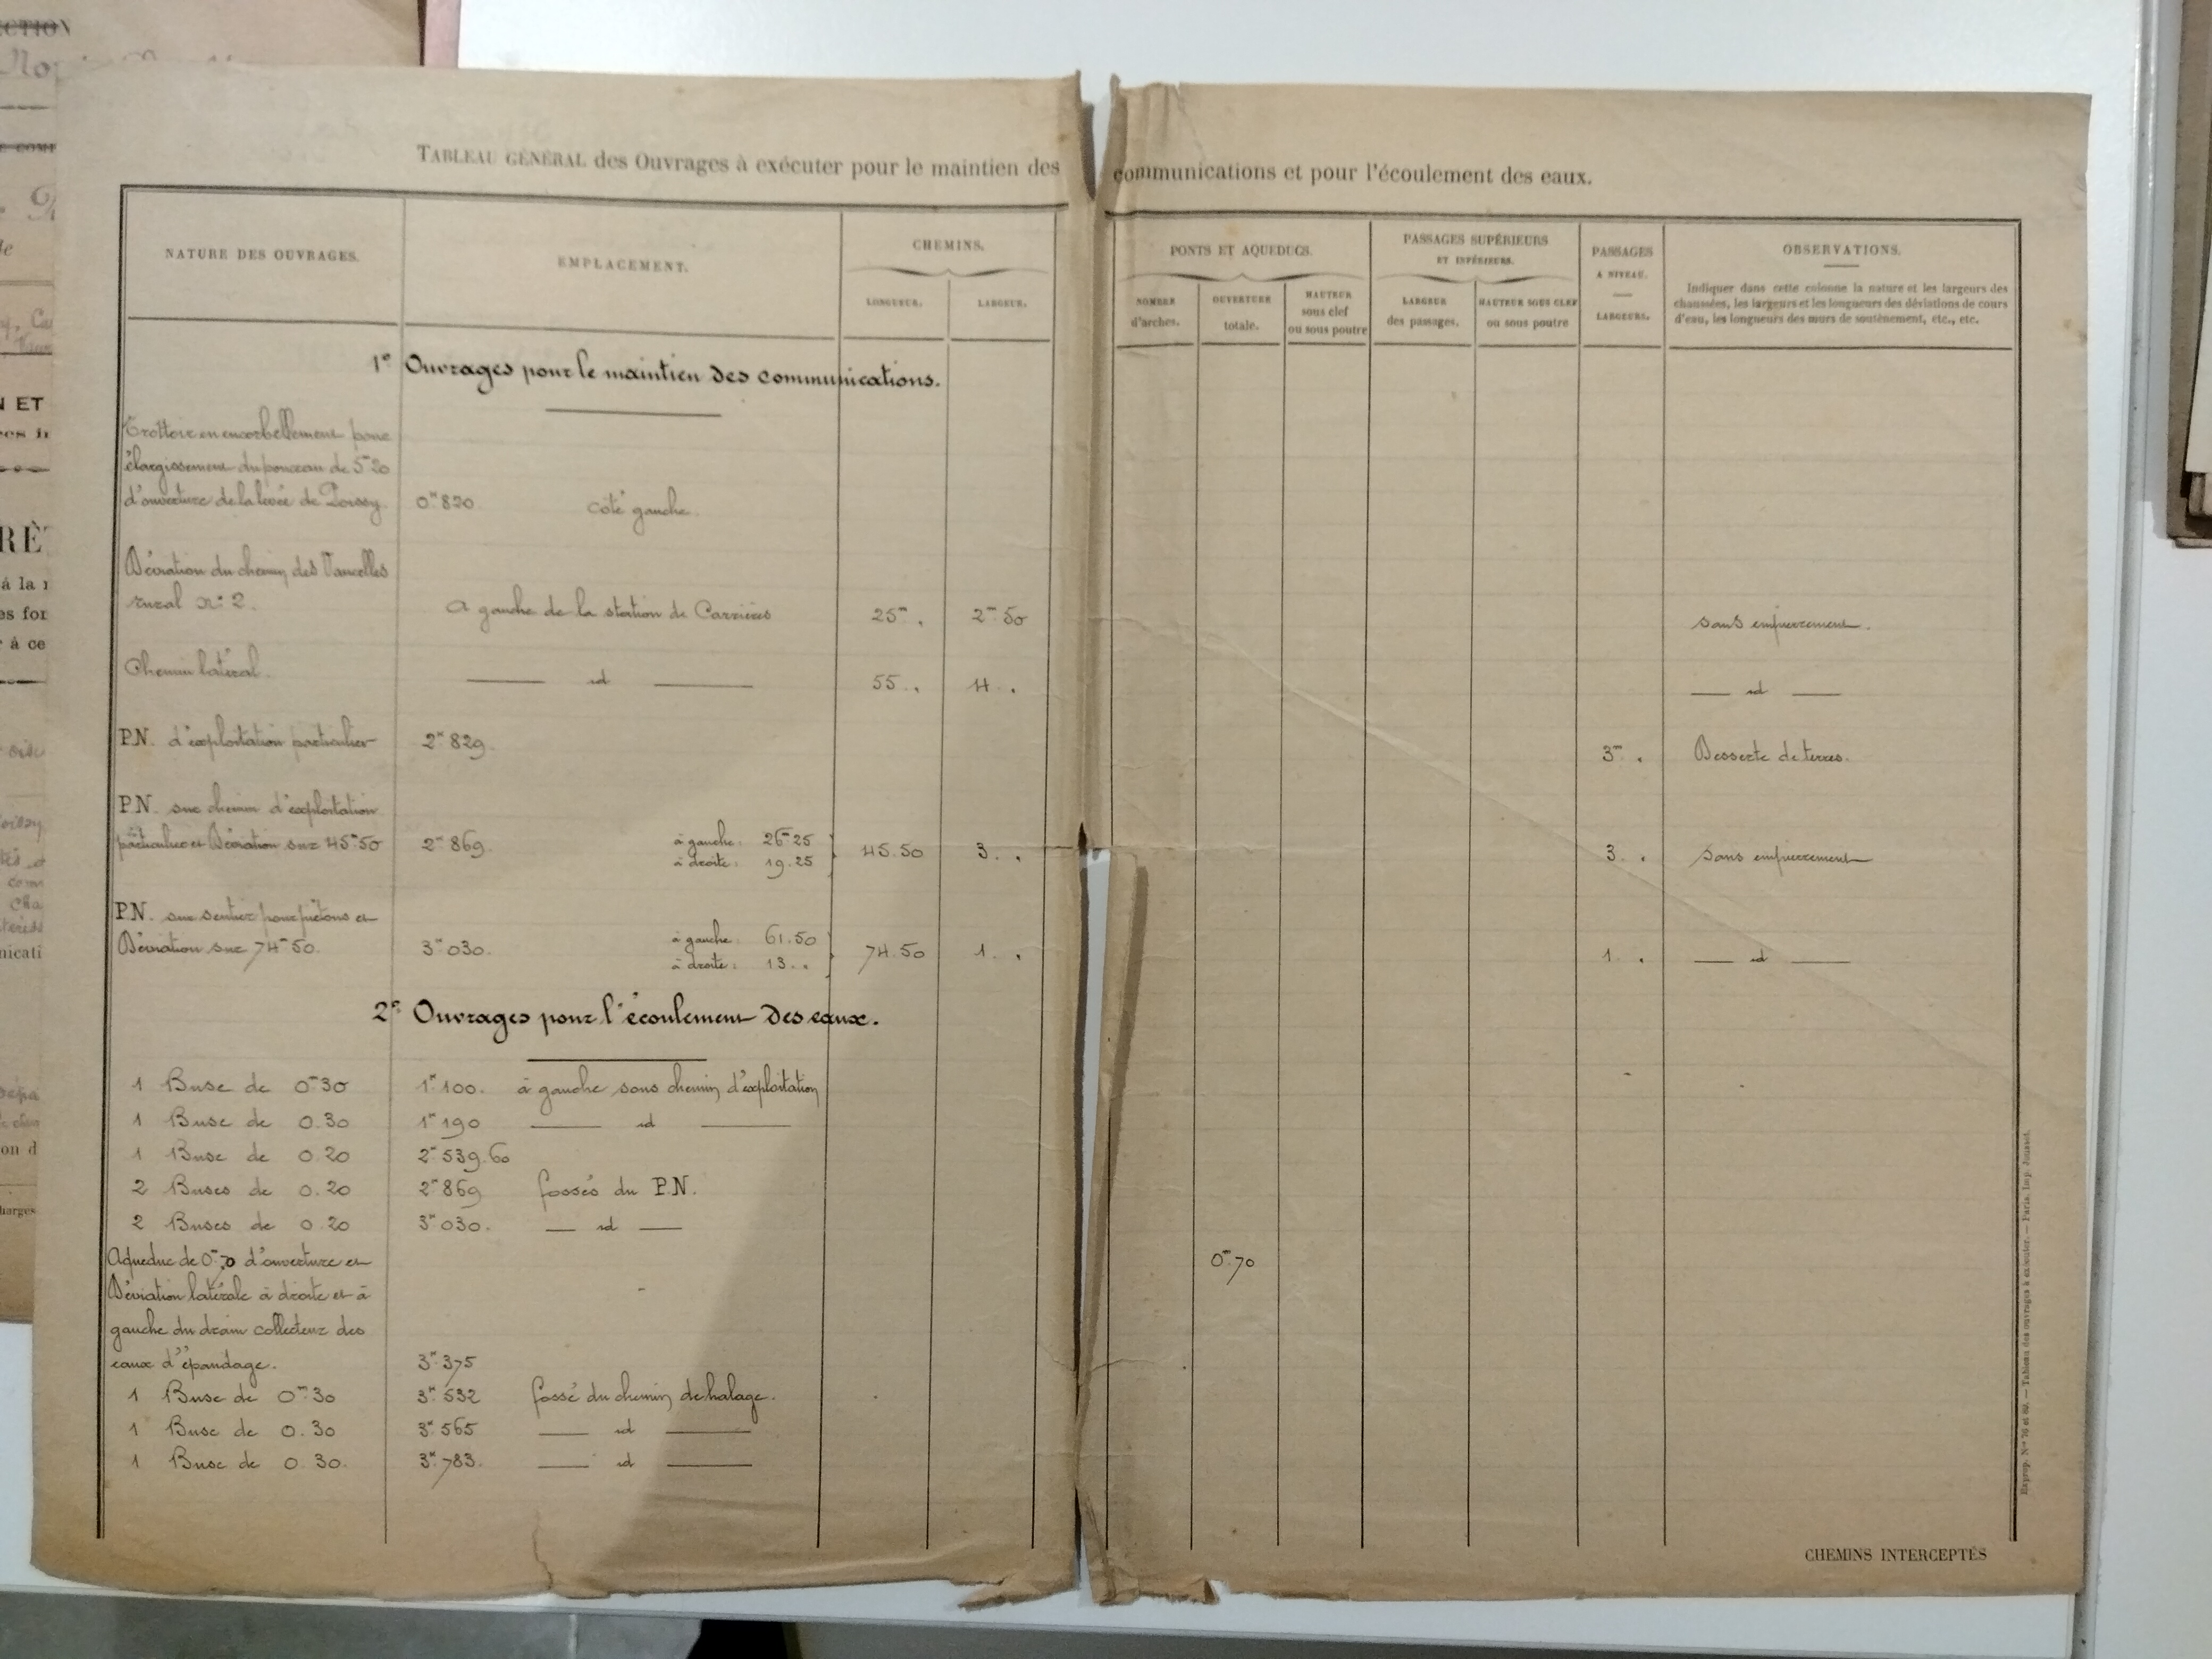 TABLEAU GÉNÉRAL des Ouvrages à exécuter pour le maintien des communications et pour l'écoulement des eaux.
NATURE DES OUVRAGES.
EMPLACEMENT.
CHEMINS.
LONGUEUR.
LARGEUR.
PONTS ET AQUEDUCS.
NOMBRE
d'arches.
OUVERTURE
totale.
HAUTEUR
sous clef
ou sous poutre
PASSAGES SUPÉRIEURS
ET INFÉRIEURS.
LARGEUR
des passages.
HAUTEUR SOUS CLEF
ou sous poutre
PASSAGES
A NIVEAU.
LARGEURS.
OBSERVATIONS.
Indiquer dans cette colonne la nature et les largeurs des
chaussées, les largeurs et les longueurs des déviations de cours
d'eau, les longueurs des murs de soutènement, etc., etc.
1º Ouvrages pour le maintien des communications.
Trottoir en encorbellement pour
élargissement du ponceau de 5m20
d'ouverture de la levée de Poissy 0k820 côté gauche.
Déviation du chemin des Vaucelles
rural nº 2. A gauche de la station de Carrières 25m . 2m50 sans empierrement.
Chemin latéral. — id — 55 . 4 . — id —
P.N. d'exploitation particulier 2k829. 3m . Desserte de terres.
P.N. sur chemin d'exploitation
particulier et Déviation sur 45m50 2k869. à gauche: 26m25 à droite: 19.25 45.50 3 . 3 . sans empierrement
P.N. sur sentier pour piétons et
Déviation sur 74m50. 3k030. à gauche: 61.50 à droite: 13 . 74.50 1 . 1 . — id —
2º Ouvrages pour l'écoulement des eaux.
1 Buse de 0m30 1k100. à gauche sous chemin d'exploitation
1 Buse de 0.30 1k190 — id —
1 Buse de 0.20 2k539.60
2 Buses de 0.20 2k869 fossés du P.N.
2 Buses de 0.20 3k030. — id —
Aqueduc de 0m70 d'ouverture et 0m70
Déviation latérale à droite et à
gauche du drain collecteur des
eaux d'épandage. 3k375
1 Buse de 0m30 3k532 fossé du chemin de halage.
1 Buse de 0.30 3k565 — id —
1 Buse de 0.30. 3k783. — id —
CHEMINS INTERCEPTÉS
Exprop. Nos 76 et 69. — Tableau des ouvrages à exécuter. — Paris. Imp. Jousset.